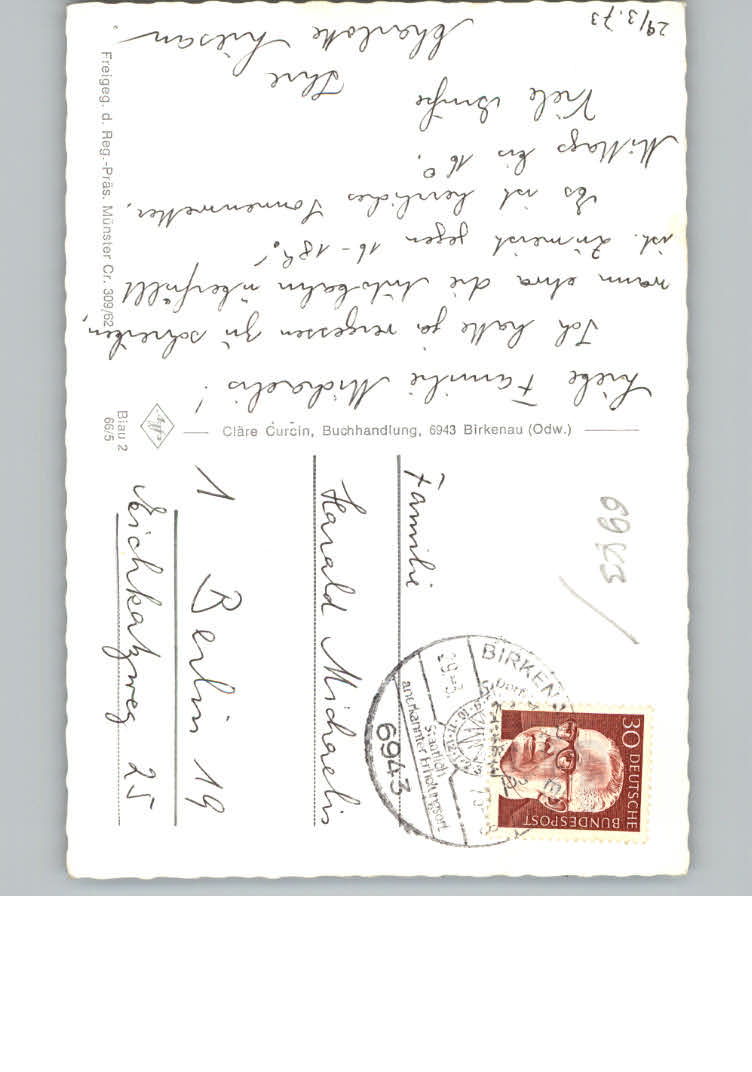 29/3.73
Liebe Familie Michaelis!
Ich hatte ja vergessen zu schreiben,
wann etwa die Autobahn überfüllt
ist. Zumeist gegen 16-18h.
Es ist herrliches Sonnenwetter.
Mittags bis 16°.
Viele Grüße
Ihre
Charlotte
Freigeg. d. Reg.-Präs. Münster Cr. 309/62
Cläre Curcin, Buchhandlung, 6943 Birkenau (Odw.)
Agfa
Biau 2
66/5
6943
Familie
Harald Michaelis
1 Berlin 19
Eichkatzweg 25
30 DEUTSCHE
BUNDESPOST
BIRKENAU
29.-3.
Staatlich
anerkannter Erholungsort
6943